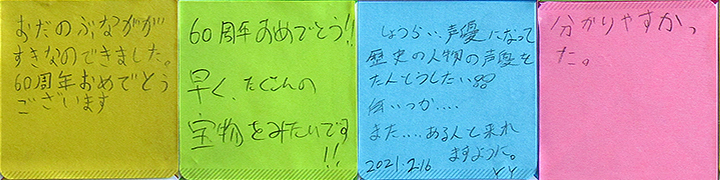 おだのぶながが
すきなのできました。
60周年おめでとう
ございます
60周年おめでとう!!
早く、たくさんの
宝物をみたいです
!!
しょうらい、声優になって
歴史の人物の声優を
たんとうしたい
いつか....
また....ある人と来れ
ますように。
2021.2.16
Y.Y
分かりやすかっ
た。